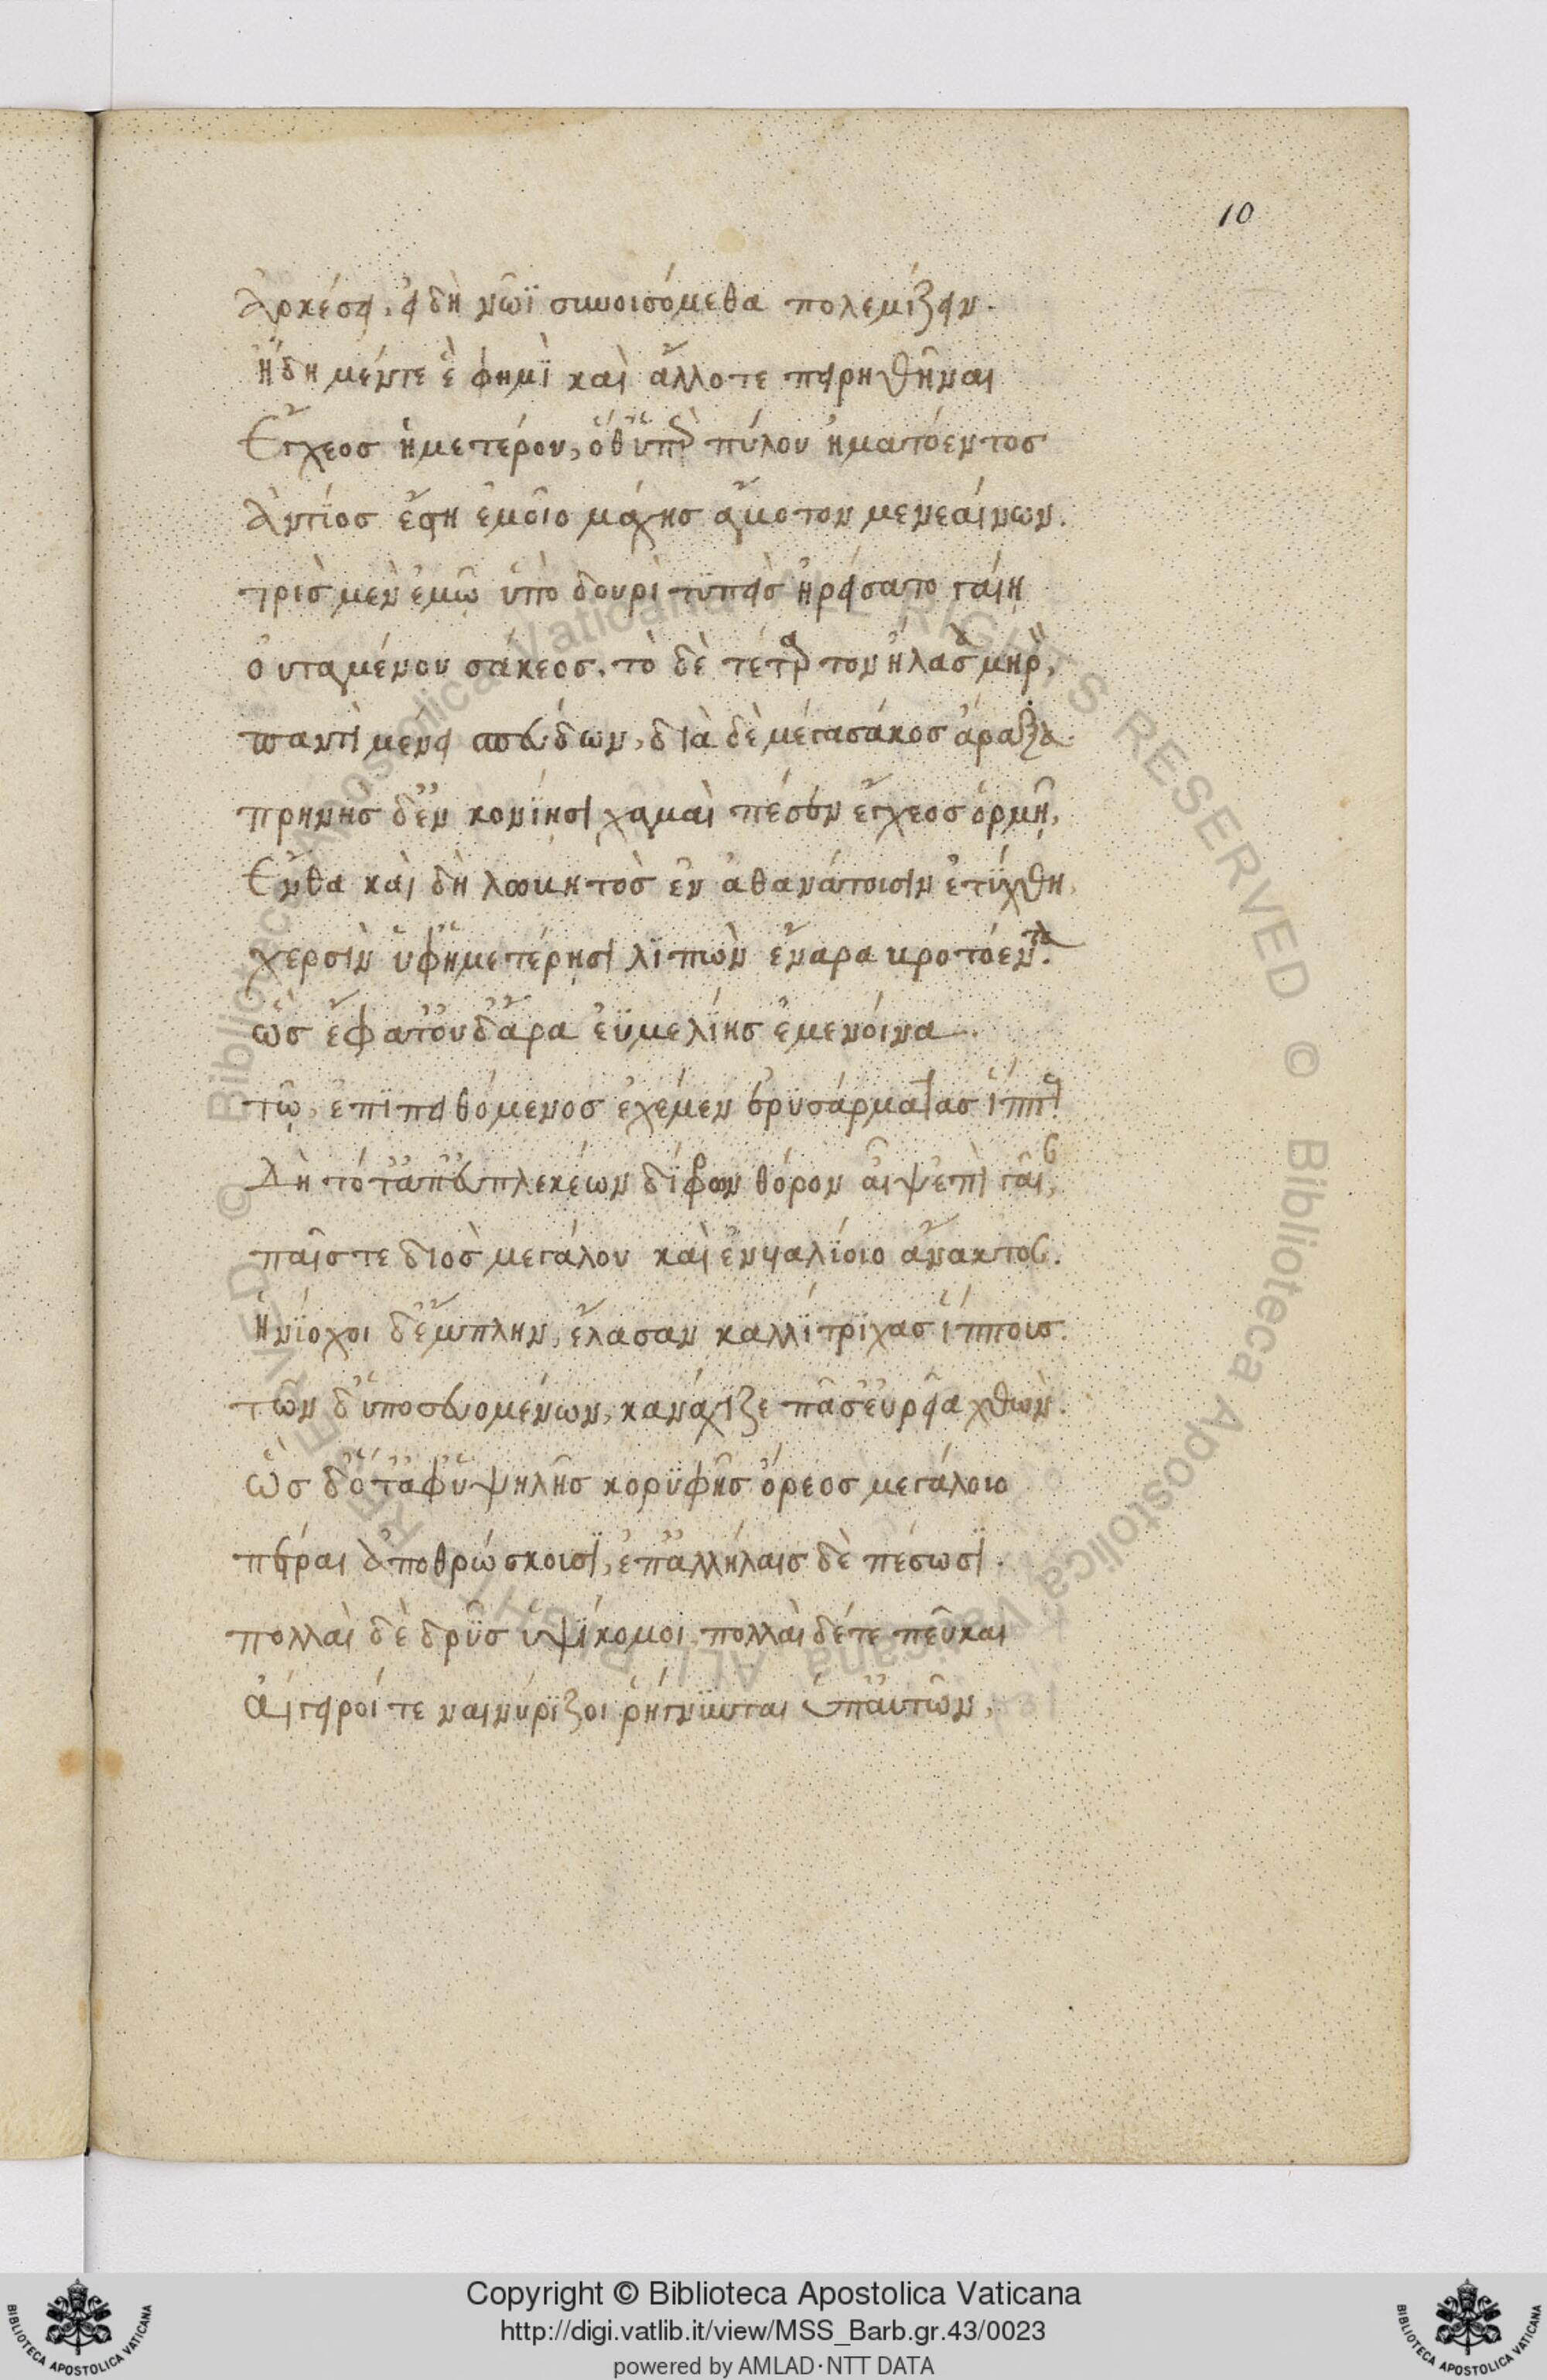 10
Ἀρκέσει, εἰ δὴ νῶϊ συνοισόμεθα πολεμίζειν.
Ἤδη μέντε ἓ φημὶ καὶ ἄλλοτε πειρηθῆναι
Ἔγχεος ἡμετέρου, ὅθ' ὑπὲρ πύλου ἠμαθόεντος
Ἀντίος ἔστη ἐμοῖο μάχης ἄμοτον μενεαίνων.
τρὶς μὲν ἐμῷ ὑπὸ δουρὶ τυπεὶς ἠρείσατο γαίῃ
οὐταμένου σάκεος. τὸ δὲ τέτρατον ἤλασα μηρὸν,
παντὶ μένει σπεύδων, διὰ δὲ μέγα σάκος ἄραξα.
πρηνὴς δ' ἐν κονίῃσι χαμαὶ πέσεν ἔγχεος ὁρμῇ,
Ἔνθα καὶ δὴ λωβητὸς ἐν ἀθανάτοισιν ἐτύχθη,
χερσὶν ὑφ' ἡμετέρῃσι λιπὼν ἔναρα βροτόεντα.
ὣς ἔφατ' οὐδ' ἄρα ἐϋμελίης ἐμενοίνα
τῷ, ἐπιπειθόμενος ἐχέμεν ἐρυσάρματας ἵππους.
Δὴ τότ' ἀπ' εὐπλεκέων δίφρων θόρον αἶψ' ἐπὶ γαῖαν,
παῖς τε διὸς μεγάλου καὶ ἐνυαλίοιο ἄνακτος.
Ἡνίοχοι δ' ἔμπλην, ἔλασαν καλλίτριχας ἵππους.
τῶν δ' ὑποσευομένων, κανάχιζε πᾶσ' εὐρεῖα χθὼν.
ὡς δ' ὅτ' ἀφ' ὑψηλῆς κορυφῆς ὄρεος μεγάλοιο
πέτραι ἀποθρώσκουσι, ἐπ' ἀλλήλαις δὲ πέσωσι.
πολλαὶ δὲ δρῦς ὑψίκομοι, πολλαὶ δέτε πεῦκαι
αἴγειροί τε ναινύριζοι ῥήγνυνται ὑπ' αὐτῶν,
© Biblioteca Apostolica Vaticana ALL RIGHTS RESERVED © Biblioteca Apostolica Vaticana ALL RIGHTS RESERVED
Copyright © Biblioteca Apostolica Vaticana
http://digi.vatlib.it/view/MSS_Barb.gr.43/0023
powered by AMLAD·NTT DATA
BIBLIOTECA APOSTOLICA VATICANA
BIBLIOTECA APOSTOLICA VATICANA